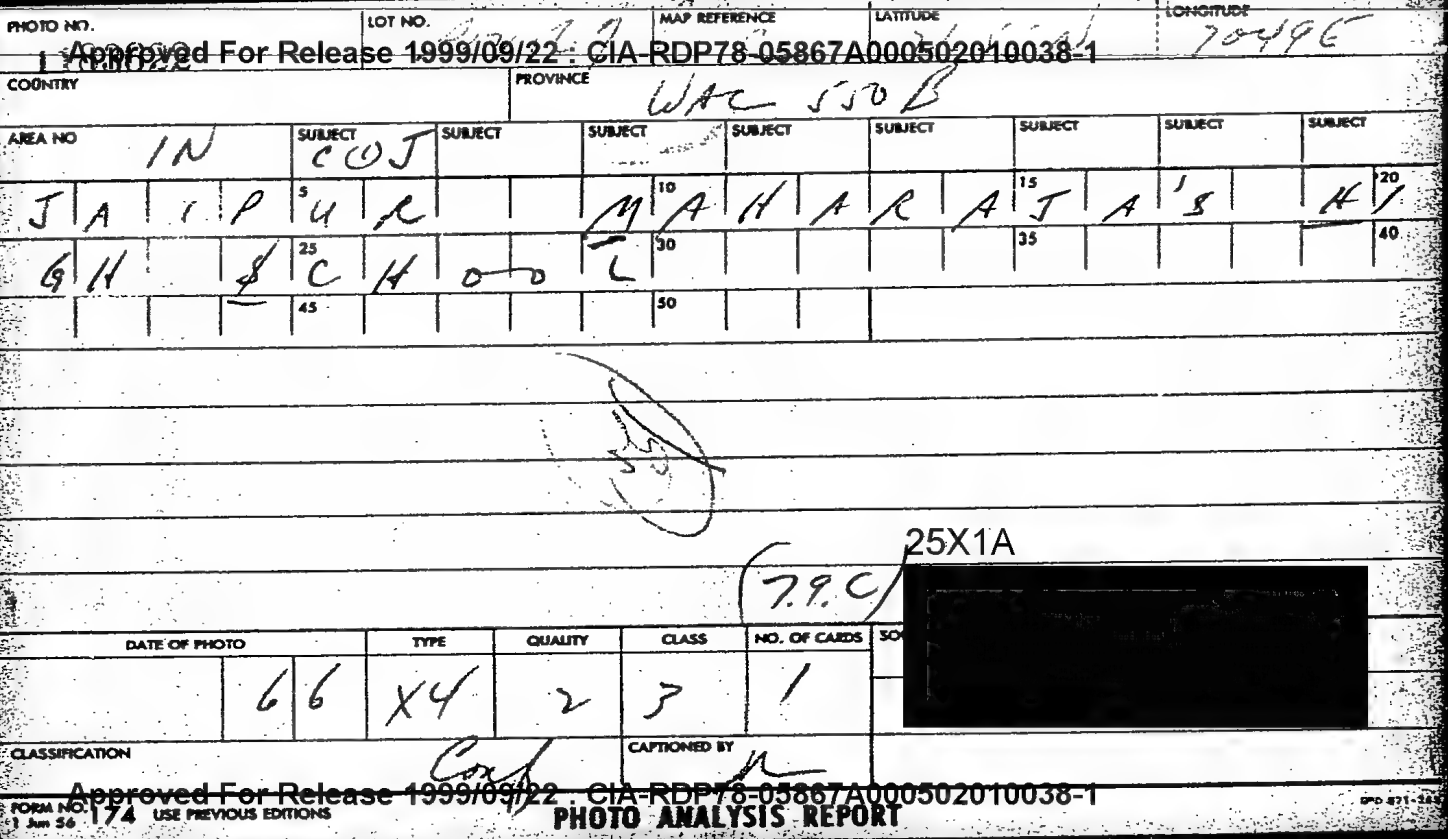 PHOTO NO. LOT NO. MAP REFERENCE LATITUDE LONGITUDE
7049E
Approved For Release 1999/09/22 : CIA-RDP78-05867A000502010038-1
COUNTRY PROVINCE
WAC 550 B
AREA NO SUBJECT SUBJECT SUBJECT SUBJECT SUBJECT SUBJECT SUBJECT SUBJECT
IN COJ
5 10 15 20
JAIPUR MAHARAJA'S HI
25 30 35 40
GH SCHOOL
45 50
25X1A
(7.9.C)
DATE OF PHOTO TYPE QUALITY CLASS NO. OF CARDS
66 X4 2 3 1
CLASSIFICATION Conf CAPTIONED BY
Approved For Release 1999/09/22 : CIA-RDP78-05867A000502010038-1
FORM NO. 174 USE PREVIOUS EDITIONS PHOTO ANALYSIS REPORT
1 Jun 56